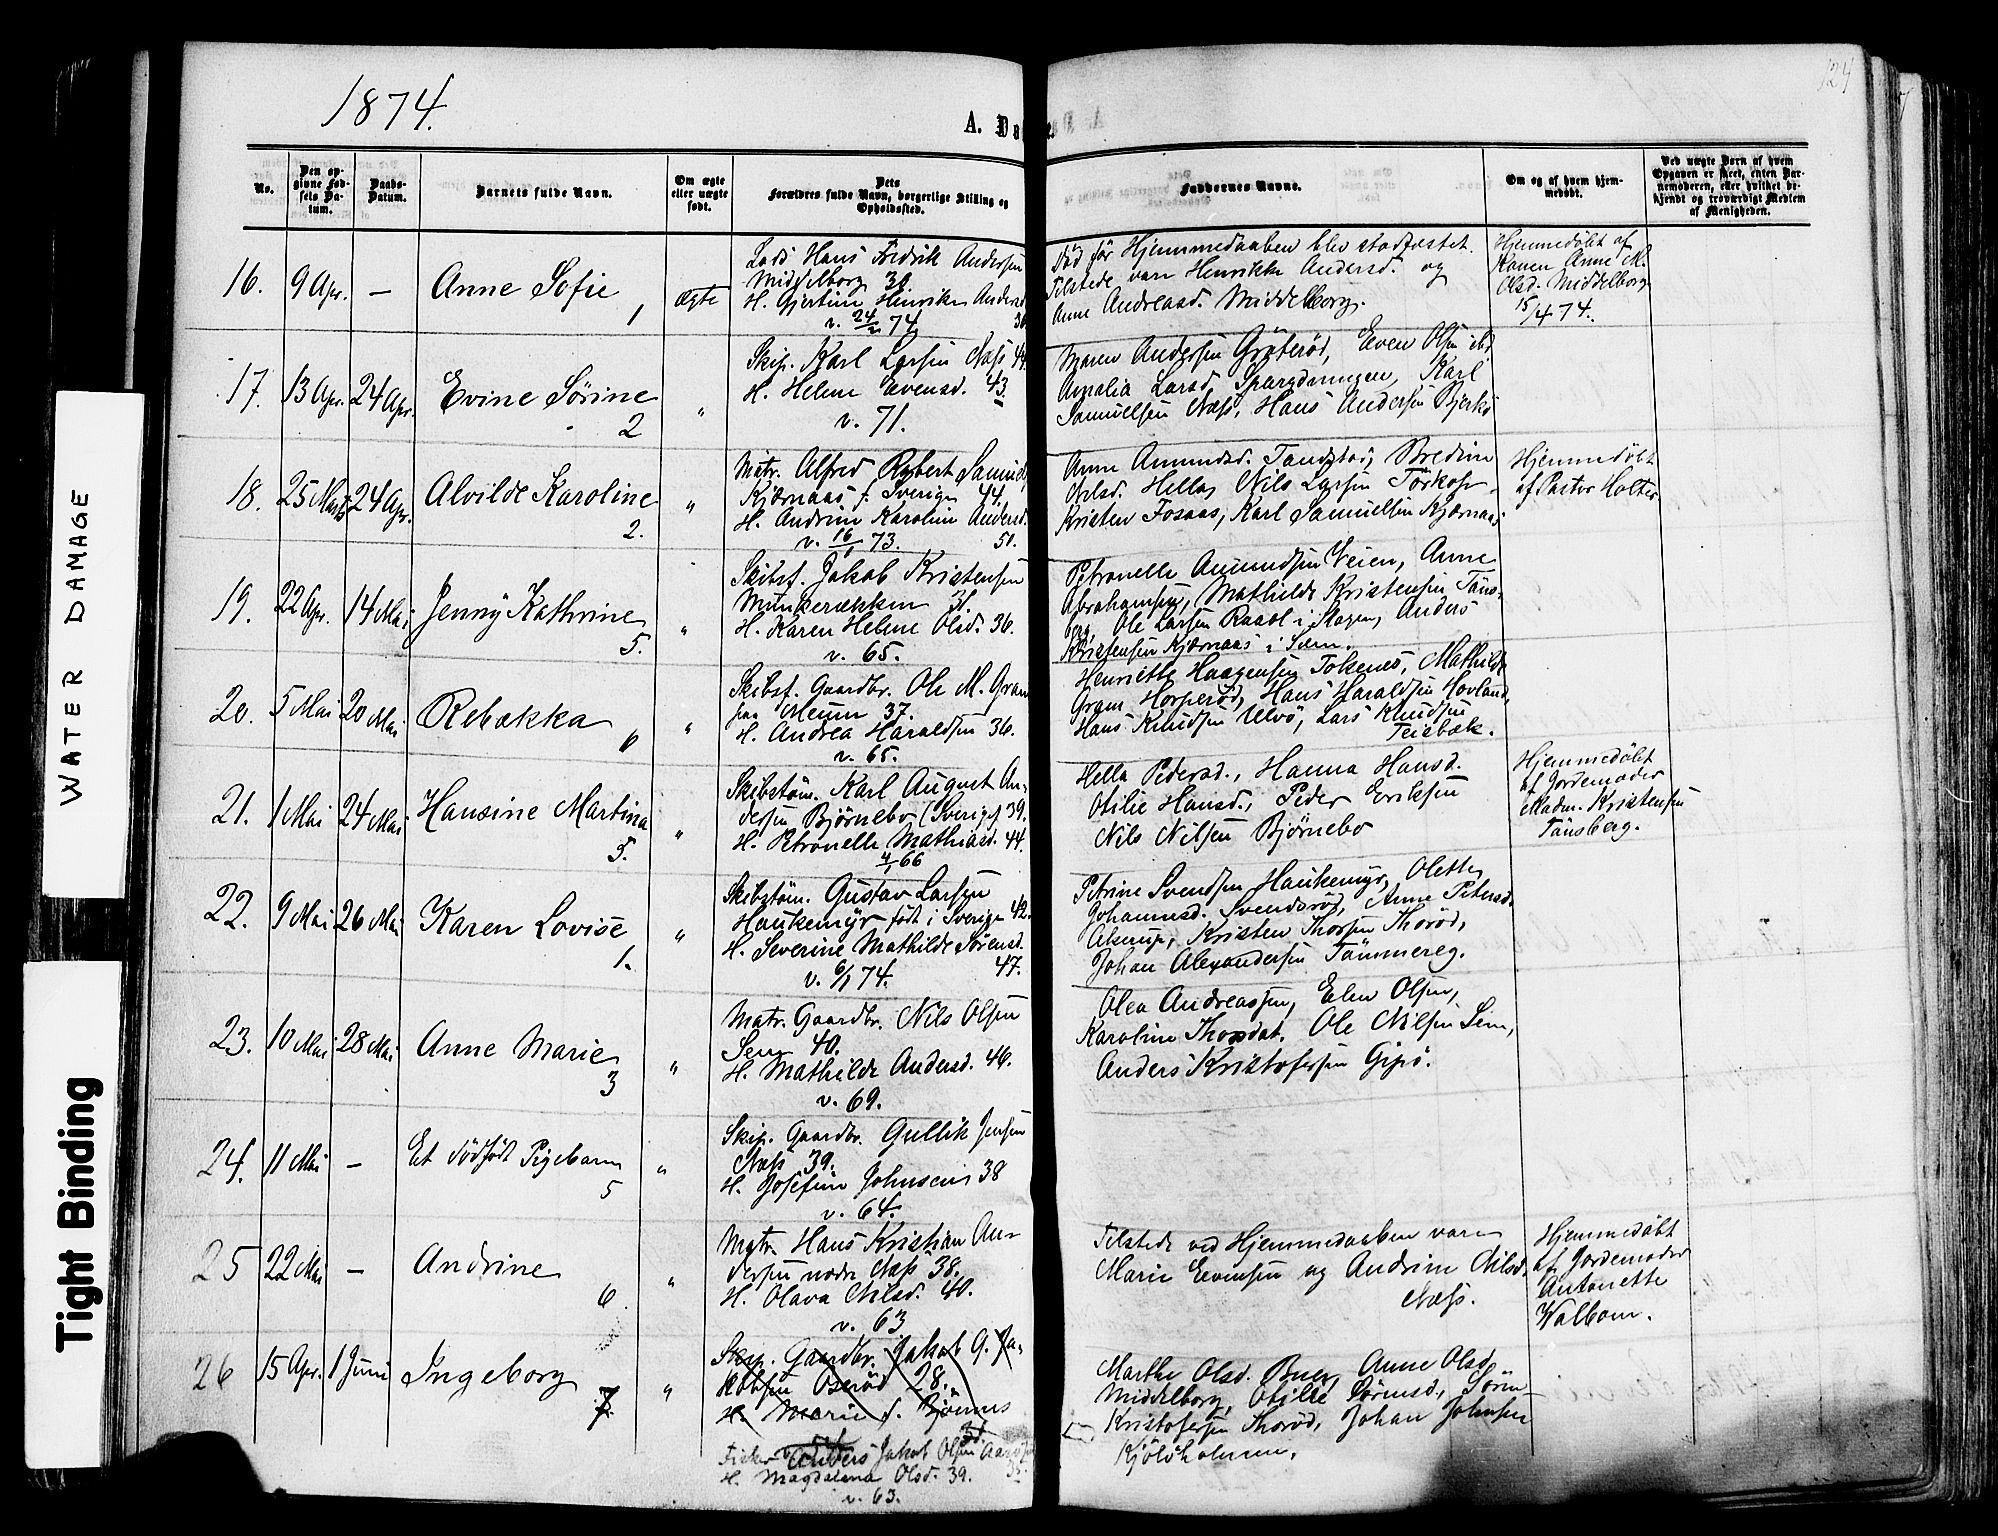 1874.
124
A. Da
No.
Den op-
givne Fød-
sels Da-
tum.
Daabs-
Datum.
Barnets fulde Navn.
Om ægte
eller uægte
født.
Dets
Forældres fulde Navn, borgerlige Stilling og
Opholdssted.
Faddernes Navne.
Om og af hvem hjem-
medøbt.
Ved uægte Børn af hvem
Opgaven er skeet, enten Bar-
nemoderen, eller hvilket be-
kjendt og troværdigt Medlem
af Menigheden.
16. 9 Apr. — Anne Sofie 1 ægte
Lods Hans Fredrik Andersen
Middelborg 38.
H. Gjertine Henrikke Andersd.
v. 24/2 74
Død før Hjemmedaaben blev stadfæstet.
Tilstede vare Henrikke Andersd. og
Anne Andreasd. Middelborg.
Hjemmedøbt af
Konen Anne M.
Olsd. Middelborg
15/4 74.
17. 13 Apr. 24 Apr. Evine Sørine 2 "
Skip. Karl Larsen Næss 44
H. Helene Evensd. 43.
v. 71.
Maren Andersen Gråterød, Even Olsen ibd
Amalia Larsd. Karl
Samuelsen Næss, Hans Andersen Bjerkø
18. 25 Marts 24 Apr. Alvilde Karoline 2. "
Matr. Alfred Robert Samuels.
Kjærnaas f. Sverige 44.
H. Andrine Karoline Andersd.
v. 16/1 73. 51.
Anne Amundsd. Tandstad, Bredine
Nilsd. Hella, Nils Larsen Torkop
Kristen Fosaas, Karl Samuelsen Kjærnaas
Hjemmedøbt
af Pastor Holter
19. 22 Apr. 14 Mai Jenny Kathrine 5. "
Skibsf. Jakob Kristensen
Munkerækken 31.
H. Karen Helene Olsd. 36.
v. 65.
Petronelle Amundsen Veien, Anne
Abrahamsen, Mathilde Kristensen Töns-
berg, Ole Larsen Rasol i Slagen, Anders
Kristensen Kjærnaas i Sem.
20. 5 Mai 20 Mai Rebækka 6 "
Skibsf. Gaardbr. Ole M. Gram
paa Meum 37.
H. Andrea Haraldsen 36.
v. 65.
Henriette Haagensen Tokenes, Mathilde
Gram Horperød, Hans Haraldsen Hovland,
Hans Knudsen Ulvø, Lars Knudsen
Teisbæk.
21. 1 Mai 24 Mai Hansine Martina 5. "
Skibstöm. Karl August An-
dersen Björnebo (Sverige) 39.
H. Petronelle Mathiasd. 44.
4/1 66
Hella Pedersd., Hanna Hansd.
Otilie Hansd., Peder Eriksen
Nils Nilsen Björnebo
Hjemmedøbt
af Jordemoder
Madm. Kristensen
Tönsberg.
22. 9 Mai 26 Mai Karen Lovise 1. "
Skibstöm. Gustav Larsen
Haukemyr født i Sverige 42.
H. Severine Mathilde Sörensd.
v. 6/1 74. 47.
Petrine Svendsen Haukemyr, Olette
Johannesd. Svendsröd, Anne Petersd.
Akerup, Kristen Thorsen Thoröd,
Johan Alexandersen Tömmereg.
23. 10 Mai 28 Mai Anne Marie 3 "
Matr. Gaardbr. Nils Olsen
Sem 40.
H. Mathilde Andersd. 46.
v. 69.
Olea Andreassen, Elen Olsen,
Karoline Thorsdat. Ole Nilsen Sem,
Anders Kristofersen Gipö.
24. 11 Mai — Et dødfødt Pigebarn 5 "
Skip. Gaardbr. Gullik Jensen
Næss 39.
H. Josefine Johnsen 38
v. 64.
25 22 Mai — Andrine 6. "
Matr. Hans Kristian An-
dersen nedre Næss 38.
H. Olava Nilsd. 40.
v. 63
Tilstede ved Hjemmedaaben vare
Marie Evensen og Andrine Nilsd.
Næss.
Hjemmedøbt
af Jordemoder
Antonette
Walbom.
26 15 Apr. 1 Juni Ingeborg 7. "
Skip. Gaardbr. Jakob G. Ja-
kobsen Oseröd 28.
H. Marie f. Björnes
Fisker Anders Jakob Olsen
H. Magdalena Olsd. 39.
v. 63.
Marthe Olsd. Buer, Anne Olsd.
Middelborg, Otilie Sörensd., Sören
Kristofersen Thoröd, Johan Johnsen
Kjölsholmen.
WATER DAMAGE
Tight Binding